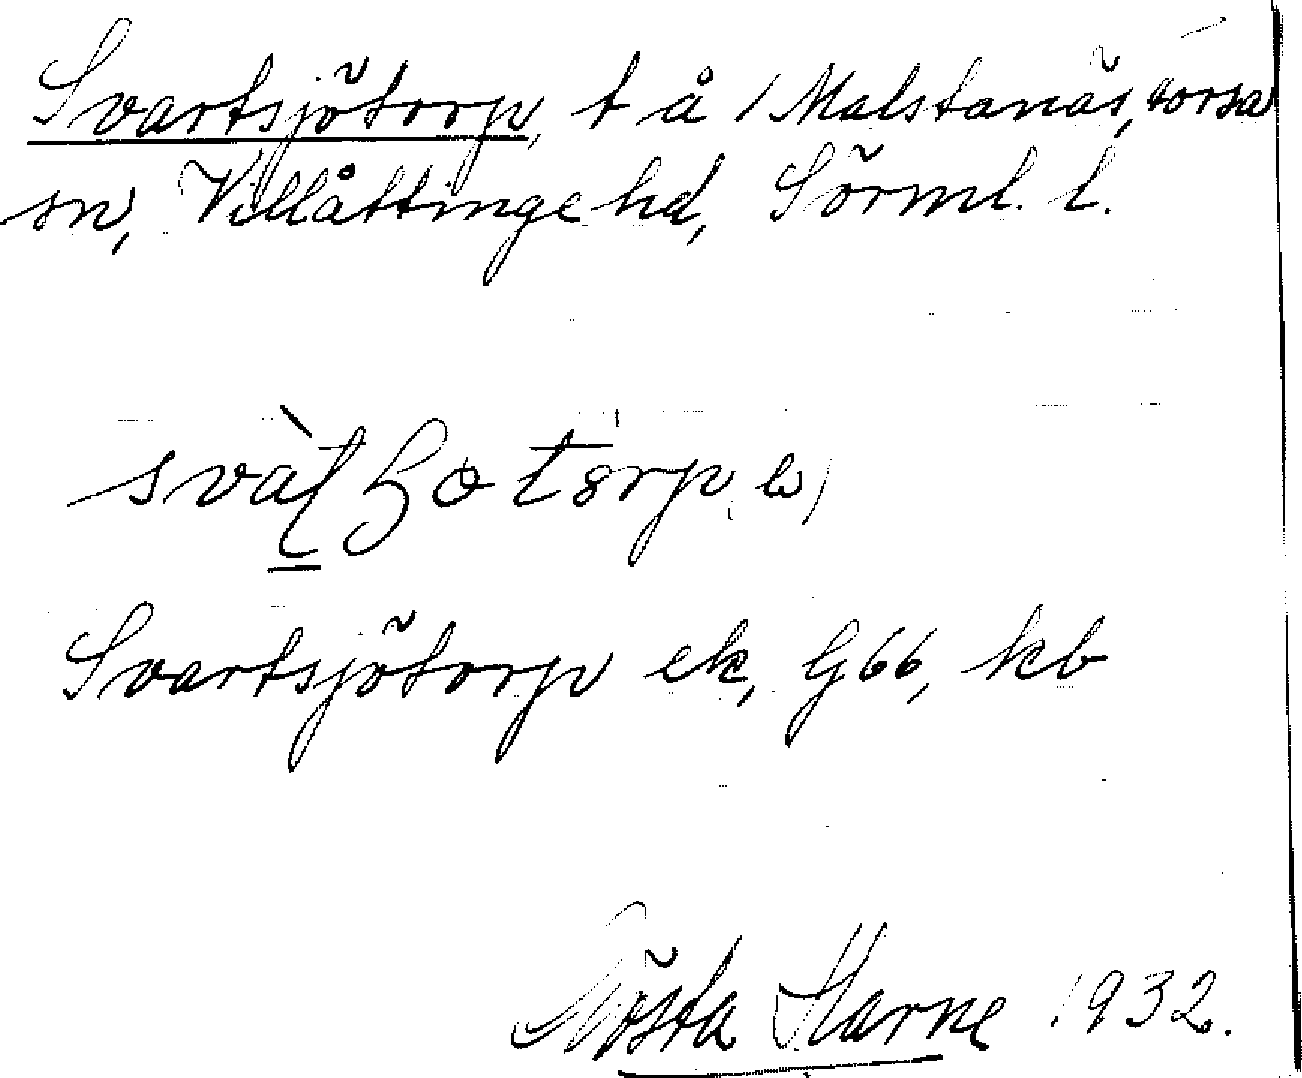 Svartsjötorp, t å /Malstanäs, Torsa
sn, Villåttinge hd, Sörml. l.
Svartsjötorp ek, G66, kb
Gösta Harne 1932.